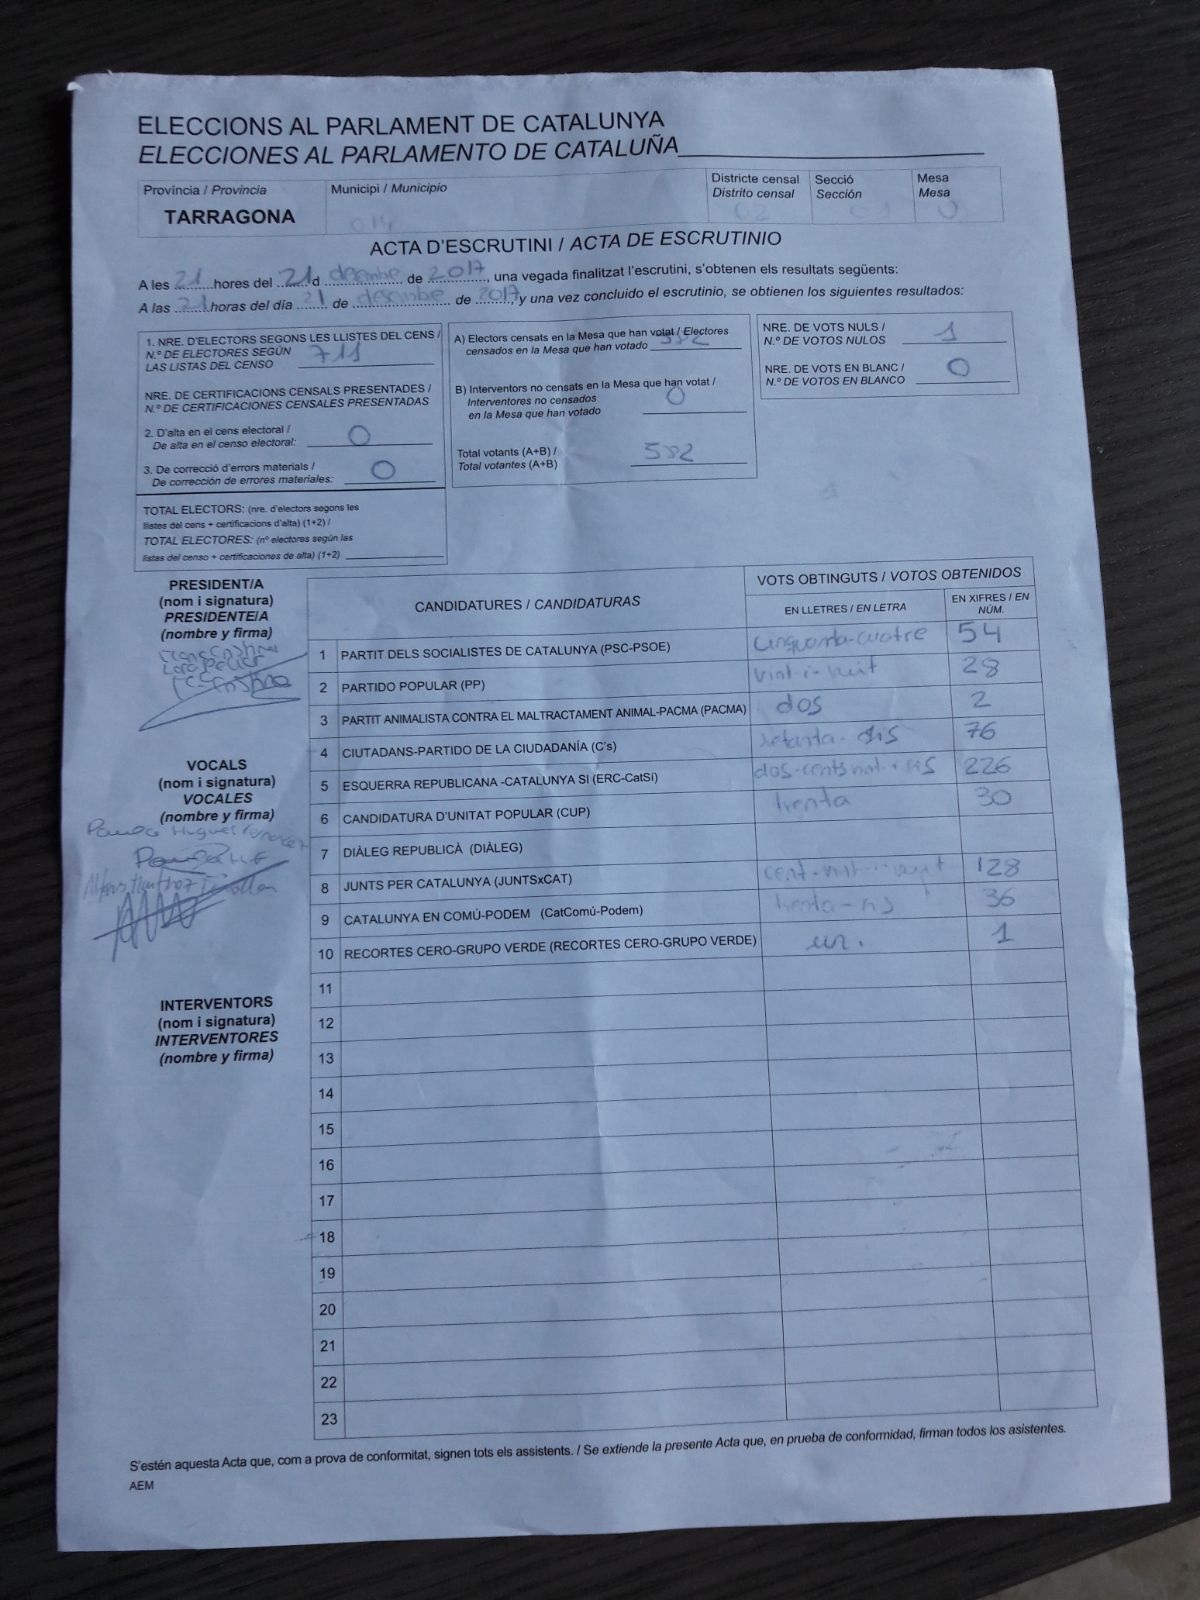 ELECCIONS AL PARLAMENT DE CATALUNYA
ELECCIONES AL PARLAMENTO DE CATALUÑA
Província / Provincia
TARRAGONA
Municipi / Municipio
014
Districte censal
Distrito censal
02
Secció
Sección
Mesa
Mesa
U
ACTA D'ESCRUTINI / ACTA DE ESCRUTINIO
A les 21 hores del 21 d desembre de 2017, una vegada finalitzat l'escrutini, s'obtenen els resultats següents:
A las 21 horas del día 21 de desembre de 2017, y una vez concluido el escrutinio, se obtienen los siguientes resultados:
1. NRE. D'ELECTORS SEGONS LES LLISTES DEL CENS /
N.º DE ELECTORES SEGÚN
LAS LISTAS DEL CENSO 711
NRE. DE CERTIFICACIONS CENSALS PRESENTADES /
N.º DE CERTIFICACIONES CENSALES PRESENTADAS
2. D'alta en el cens electoral /
De alta en el censo electoral: 0
3. De correcció d'errors materials /
De corrección de errores materiales: 0
TOTAL ELECTORS: (nre. d'electors segons les
llistes del cens + certificacions d'alta) (1+2) /
TOTAL ELECTORES: (nº electores según las
listas del censo + certificaciones de alta) (1+2)
A) Electors censats en la Mesa que han votat / Electores
censados en la Mesa que han votado 582
B) Interventors no censats en la Mesa que han votat /
Interventores no censados
en la Mesa que han votado 0
Total votants (A+B) /
Total votantes (A+B) 582
NRE. DE VOTS NULS /
N.º DE VOTOS NULOS 1
NRE. DE VOTS EN BLANC /
N.º DE VOTOS EN BLANCO 0
PRESIDENT/A
(nom i signatura)
PRESIDENTE/A
(nombre y firma)
VOCALS
(nom i signatura)
VOCALES
(nombre y firma)
INTERVENTORS
(nom i signatura)
INTERVENTORES
(nombre y firma)
CANDIDATURES / CANDIDATURAS
VOTS OBTINGUTS / VOTOS OBTENIDOS
EN LLETRES / EN LETRA
EN XIFRES / EN NÚM.
1 PARTIT DELS SOCIALISTES DE CATALUNYA (PSC-PSOE) cinquanta-cuatre 54
2 PARTIDO POPULAR (PP) vint-i-vuit 28
3 PARTIT ANIMALISTA CONTRA EL MALTRACTAMENT ANIMAL-PACMA (PACMA) dos 2
4 CIUTADANS-PARTIDO DE LA CIUDADANÍA (C's) setanta-sis 76
5 ESQUERRA REPUBLICANA -CATALUNYA SI (ERC-CatSí) dos-cents vint-i-sis 226
6 CANDIDATURA D'UNITAT POPULAR (CUP) trenta 30
7 DIÀLEG REPUBLICÀ (DIÀLEG)
8 JUNTS PER CATALUNYA (JUNTSxCAT) cent-vint-i-vuit 128
9 CATALUNYA EN COMÚ-PODEM (CatComú-Podem) trenta-sis 36
10 RECORTES CERO-GRUPO VERDE (RECORTES CERO-GRUPO VERDE) un. 1
11
12
13
14
15
16
17
18
19
20
21
22
23
S'estén aquesta Acta que, com a prova de conformitat, signen tots els assistents. / Se extiende la presente Acta que, en prueba de conformidad, firman todos los asistentes.
AEM